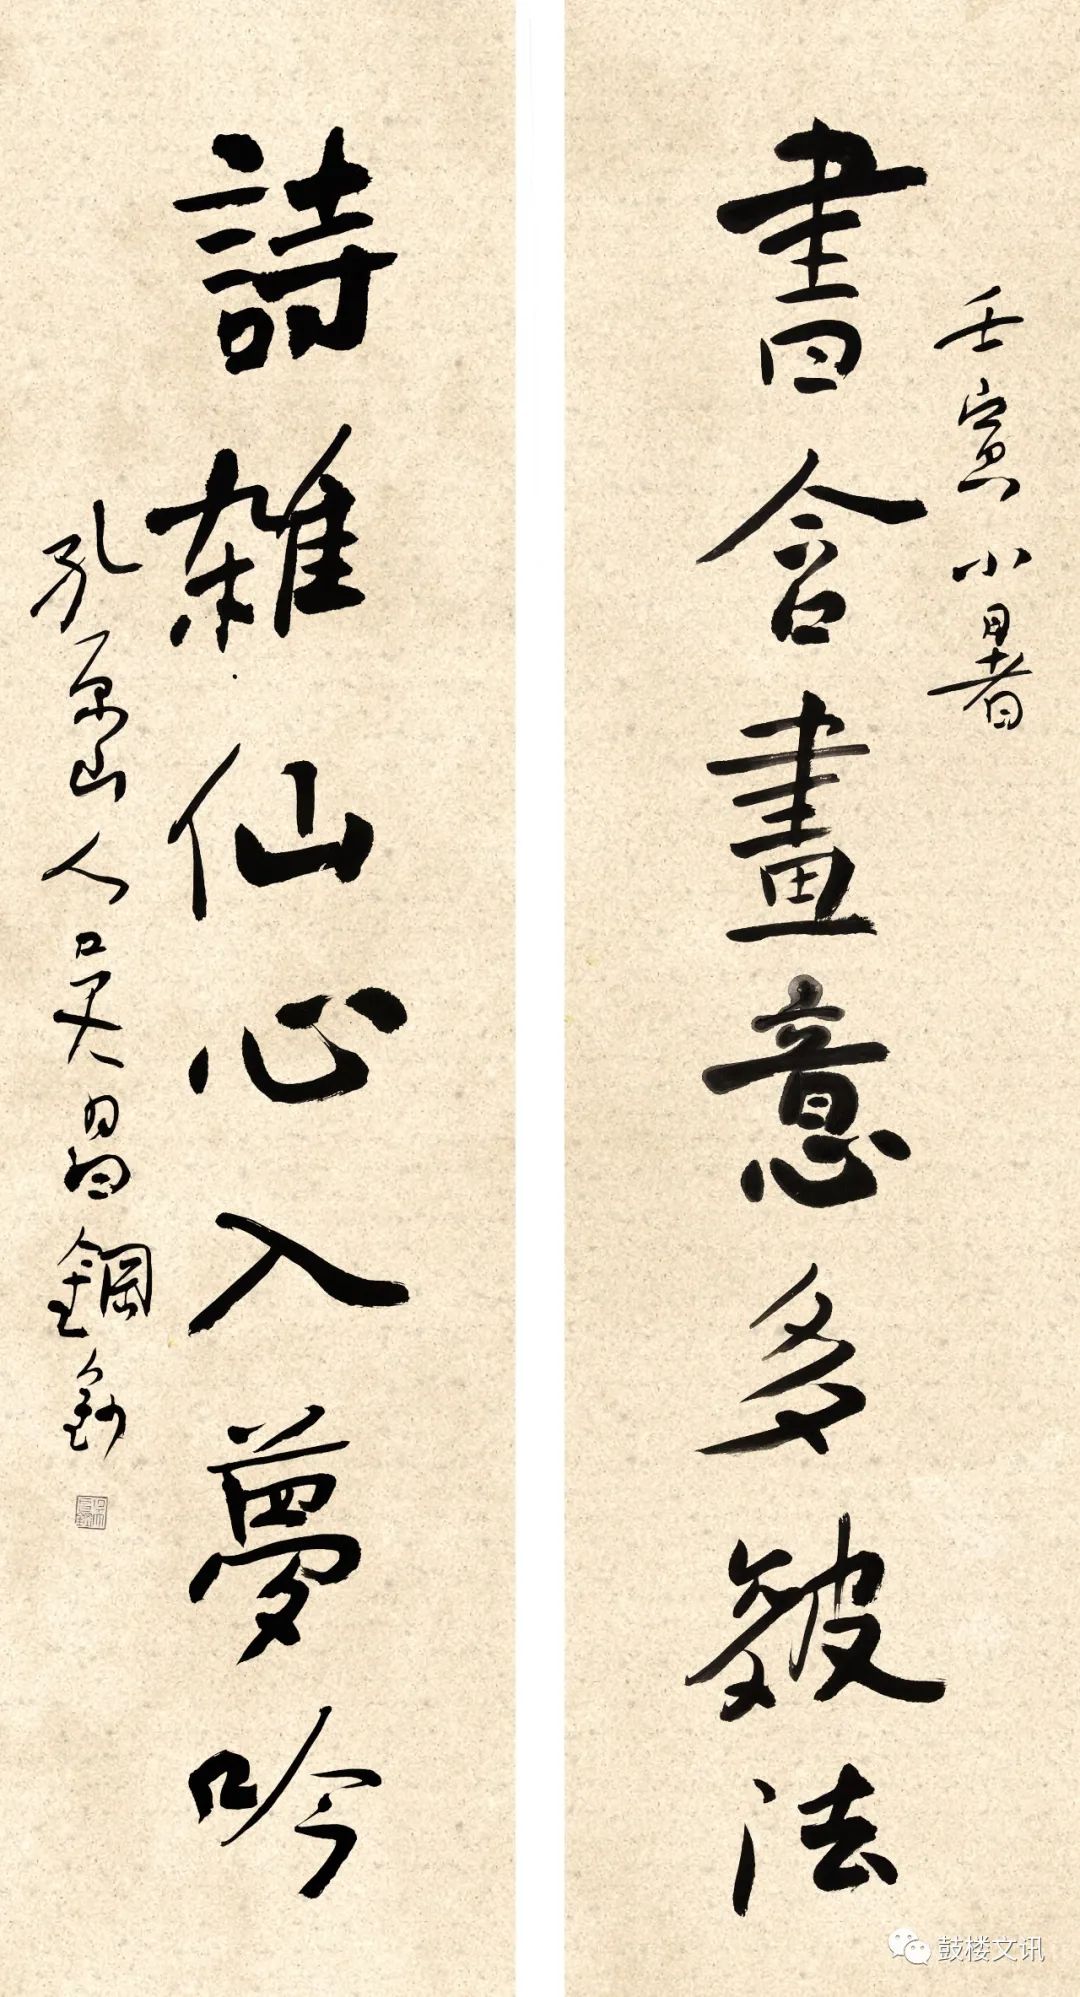 壬寅小暑
書含畫意多皴法
詩雜仙心入夢吟
孔原山人吳昌鋼鈔
鼓楼文讯